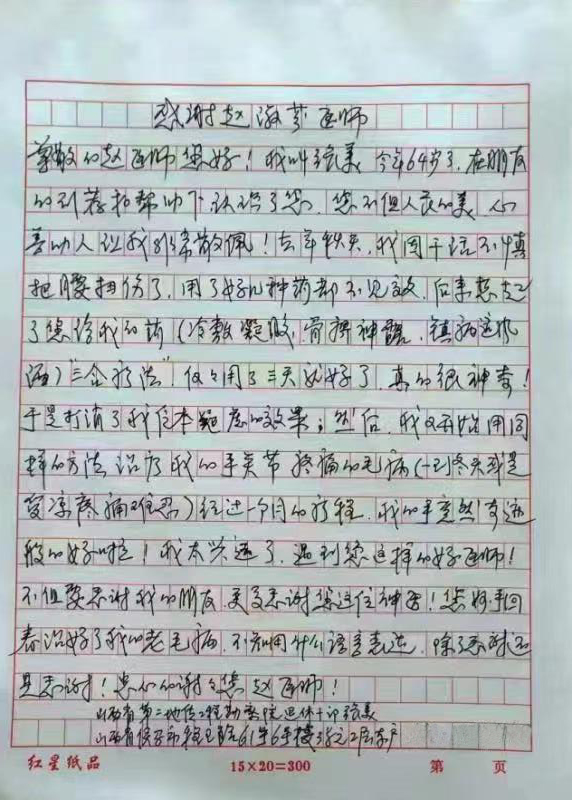 感谢赵淑芬医师
尊敬的赵医师您好！我叫张美 今年64岁了，在朋友
的引荐和帮助下认识了您，您不但人长的美，心
善助人让我非常敬佩！去年秋天，我因干活不慎
把腰扭伤了，用了好几种药都不见效，后来想起
了您给我的药（冷敷凝胶，骨脾神露，镇痛追风
油）"三合疗法"，仅仅用了三天就好了，真的很神奇！
于是打消了我信本的效果；然后，我又开始用同
样的方法治疗我的手关节疼痛的毛病（一到冬天或是
变凉疼痛难忍）经过一个月的疗程，我的手竟然奇迹
般的好啦！我太兴运了，遇到您这样的好医师！
不但要感谢我的朋友，更要感谢您这位神医！您妙手回
春治好了我的老毛病，不知用什么语言表达，除了感谢还
是感谢！忠心的谢谢您赵医师！
山西省第二地质工程勘察院退休干部张美
山西省侯马市程王路61号6号楼3单元2层东户
红星纸品 15×20=300 第 页